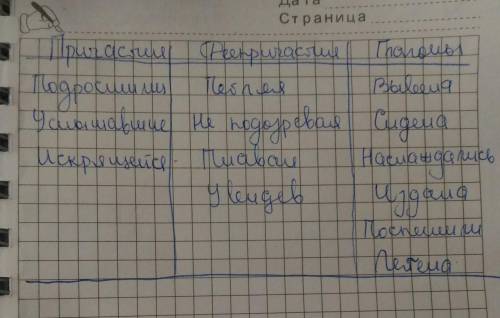 Дата
Страница
Причастия Деепричастия Глаголы
Подросшими Петляя Вывела
Услышавшие Не подозревая Сидела
Искрящейся Плавал Наслаждались
Увидев Издала
Поспешили
Летела